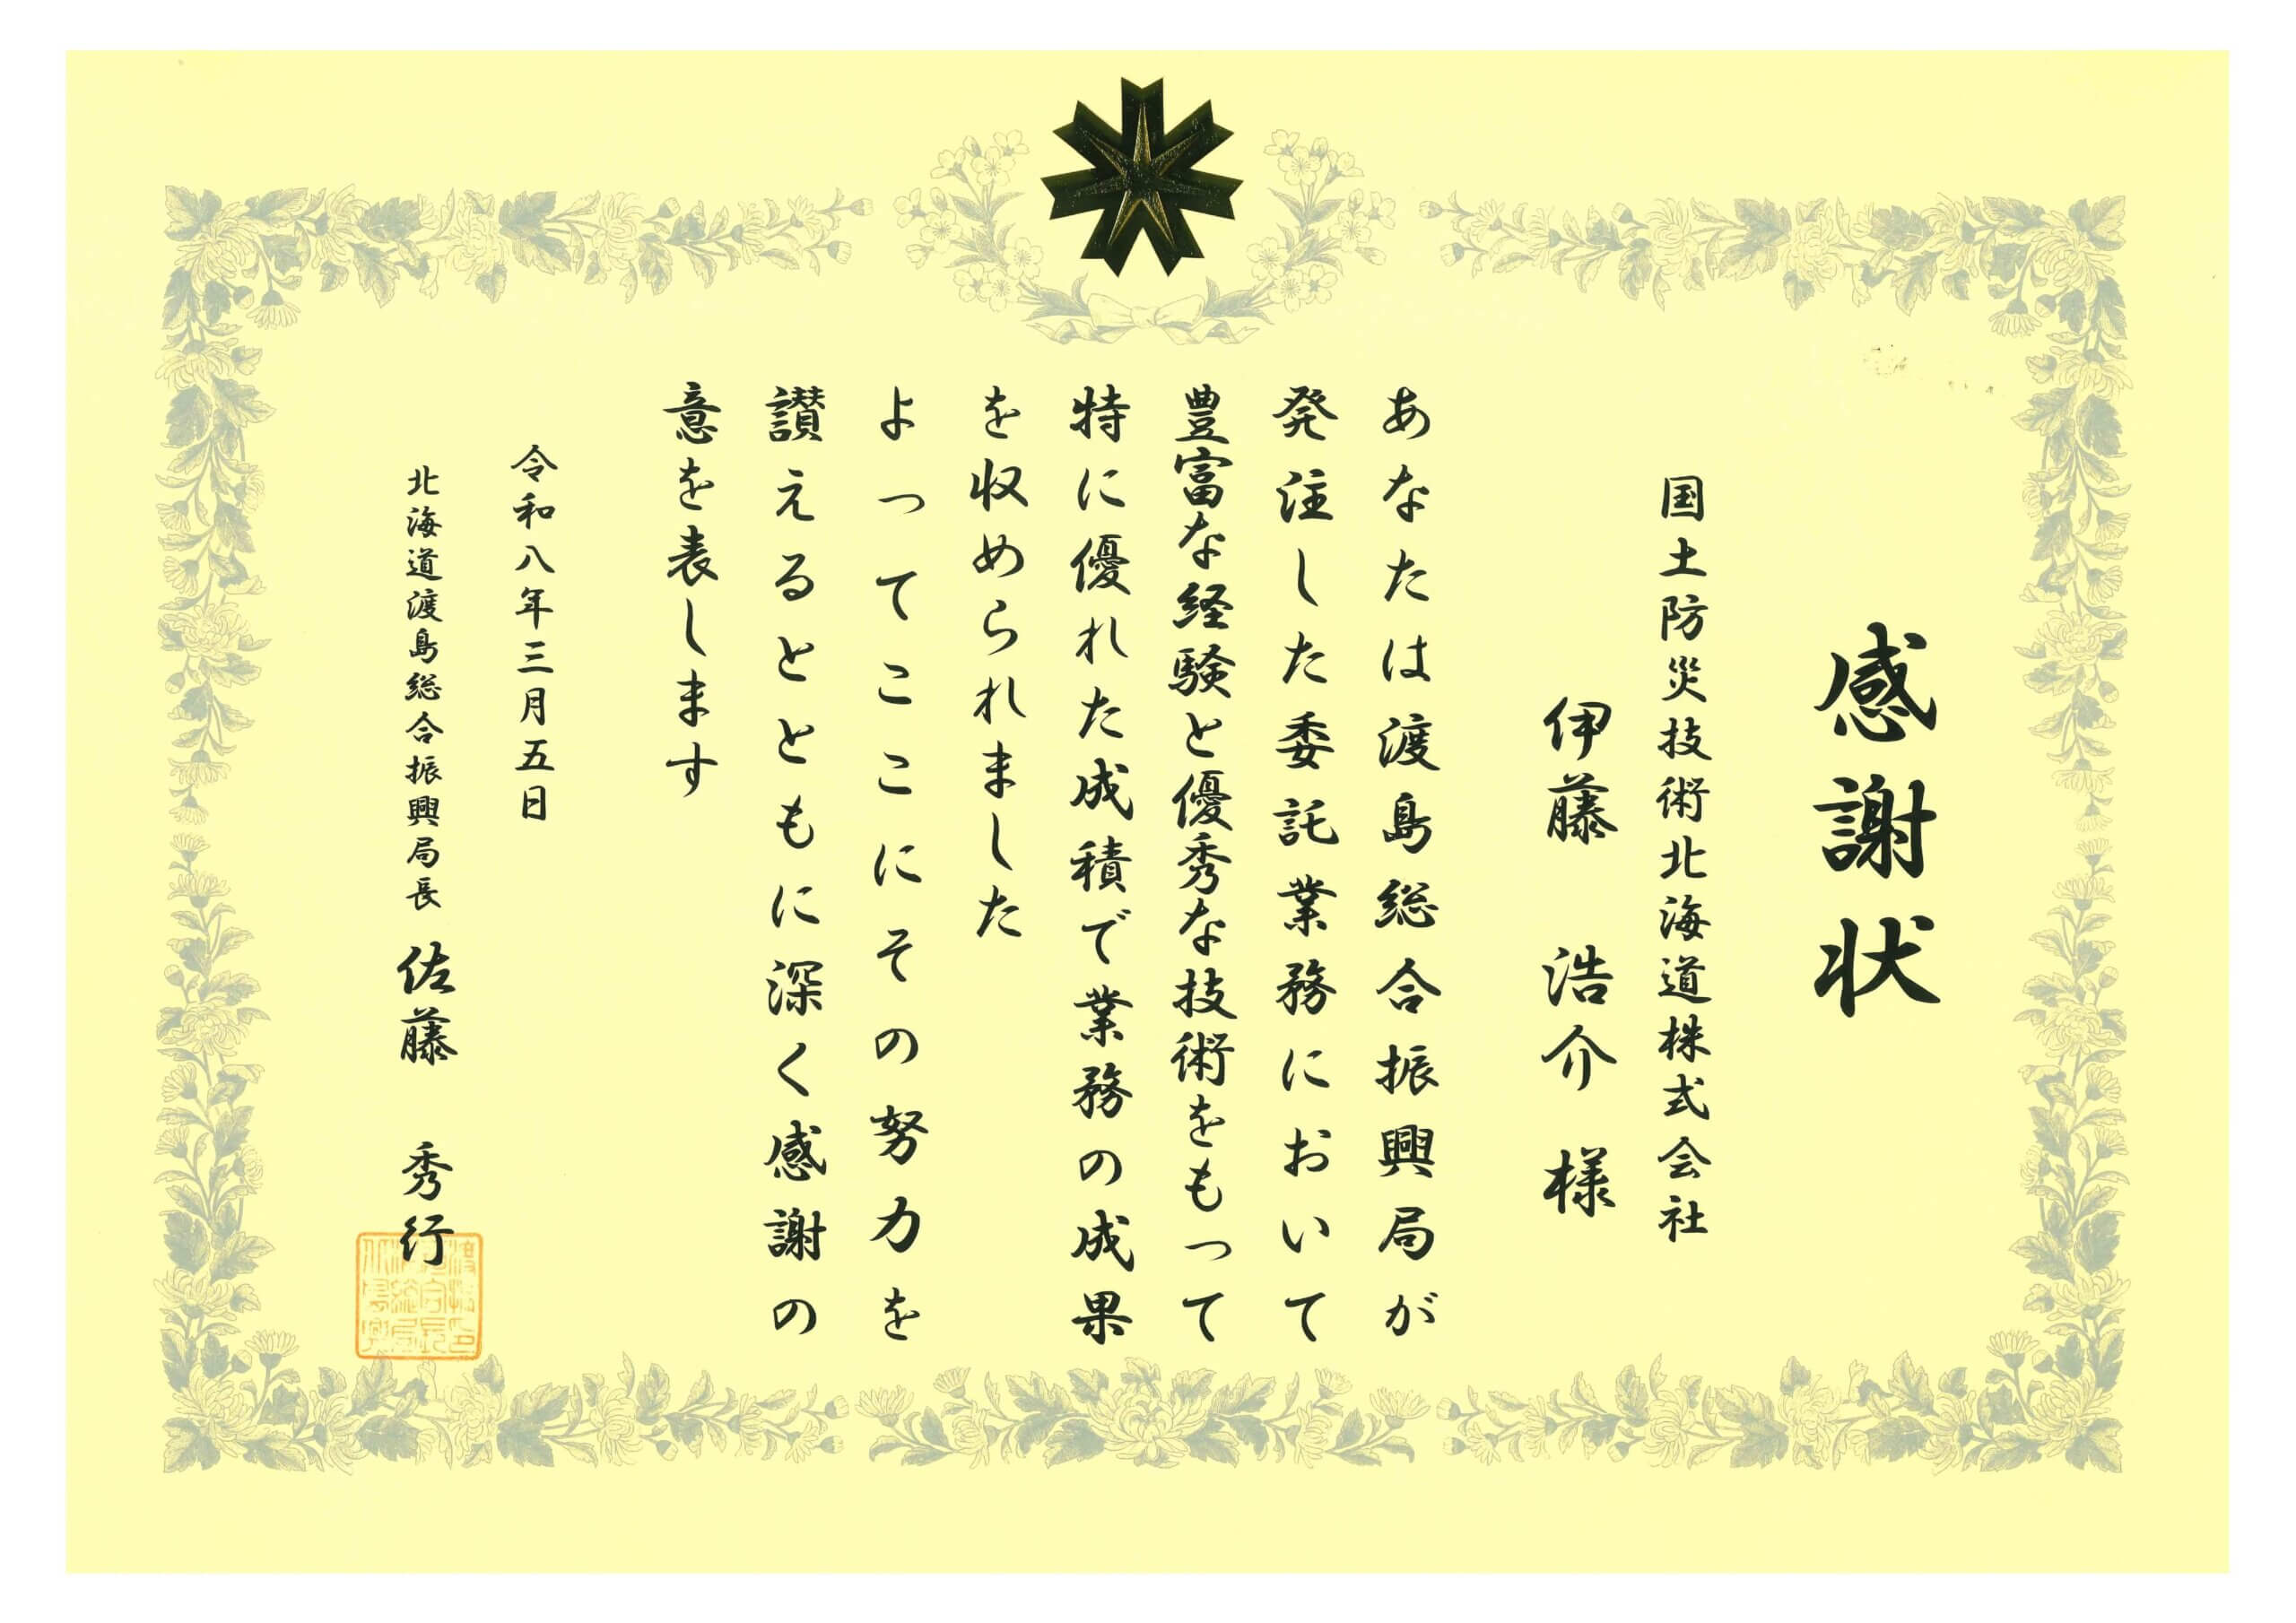 感謝状
国土防災技術北海道株式会社
伊藤 浩介 様
あなたは渡島総合振興局が
発注した委託業務において
豊富な経験と優秀な技術をもって
特に優れた成積で業務の成果
を収められました
よってここにその努力を
讃えるとともに深く感謝の
意を表します
令和八年三月五日
北海道渡島総合振興局長 佐藤 秀行